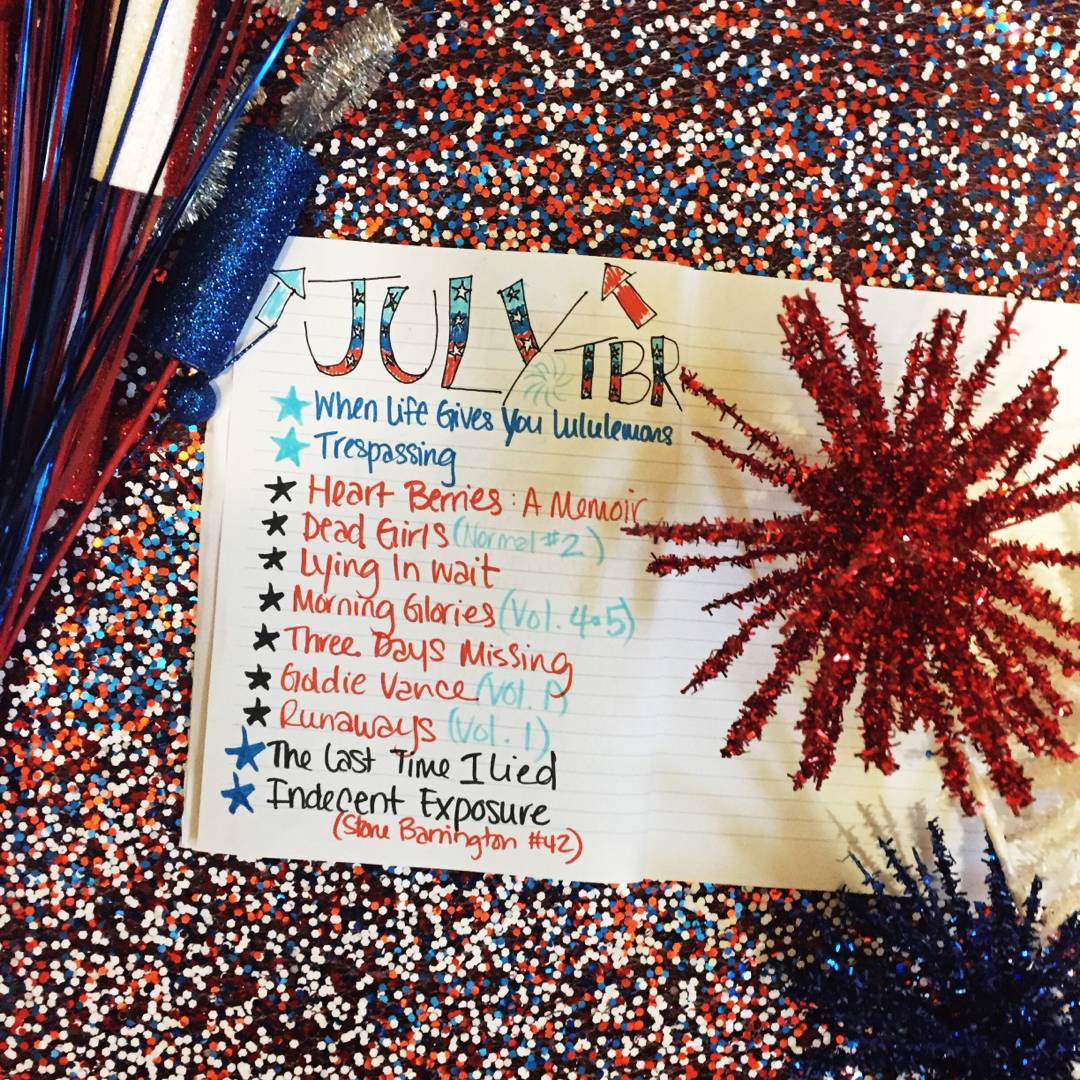 JULY TBR
When Life Gives You Lululemons
Trespassing
Heart Berries: A Memoir
Dead Girls (Normal #2)
Lying In Wait
Morning Glories (Vol. 4-5)
Three Days Missing
Goldie Vance (Vol. 1)
Runaways (Vol. 1)
The Last Time I Lied
Indecent Exposure
(Stone Barrington #42)